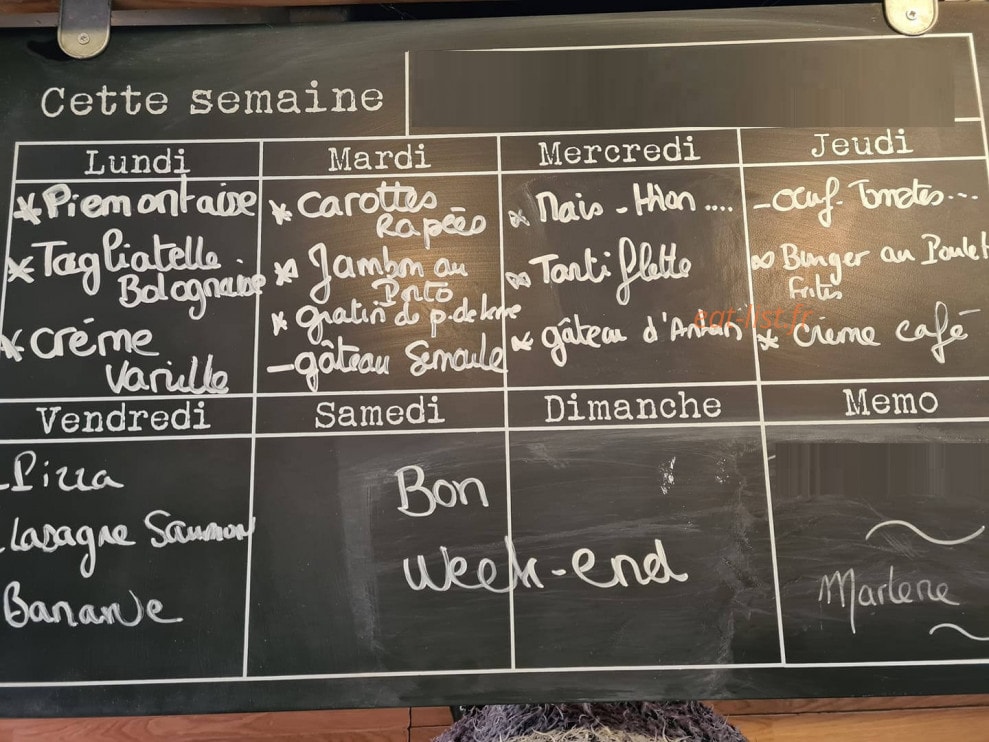 Cette semaine
Lundi
* Piemontaise
* Tagliatelle
Bolognaise
* crème
Vanille
Mardi
* Carottes
Rapées
* Jambon au
Porto
* gratin de p.de terre
- gâteau Semoule
Mercredi
* Mais - Thon ....
* Tartiflette
* gâteau d'Anan
Jeudi
- Oeuf - Tomates ...
* Burger au Poulet
frites
* Crème café
Vendredi
- Pizza
- Lasagne Saumon
Banane
Samedi
Dimanche
Bon
Week-end
Memo
Marlene
eat-list.fr